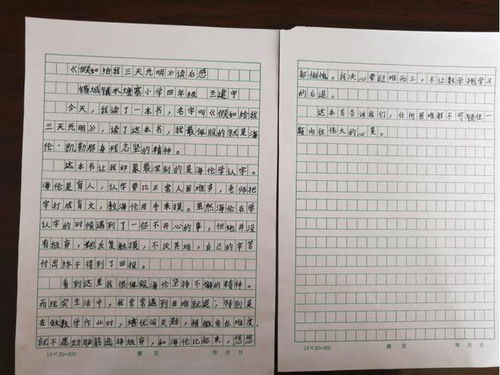 《假如给我三天光明》读后感
镇城镇水塘寨小学四年级 兰建宇
今天,我读了一本书,名字叫《假如给我
三天光明》,读了这本书,我最佩服的就是海
伦·凯勒那身残志坚的精神。
这本书让我印象最深刻的是海伦学认字。
海伦是盲人,认字要比正常人困难多,老师把
字打成盲文,教海伦用手来摸。虽然海伦在学
认字的时候遇到了一些不开心的事,但她并没
有放弃,她反复触摸,不厌其烦,自己的辛苦
付出终于得到了回报。
看到这里我很佩服海伦坚持不懈的精神。
而现实生活中,我常常遇到困难就退,特别是
在做数学作业时,堵优闯关题,稍微有点难度,
就不愿动脑筋选择放弃,和海伦比起来,想想
15×20=300 第 页 年 月 日
都惭愧。我决心要迎难而上,不让数学拖学习
的后退。
这本书告诉我们,任何困难都不可阻住一
颗向往伟大的心灵。
15×20=300 第 页 年 月 日